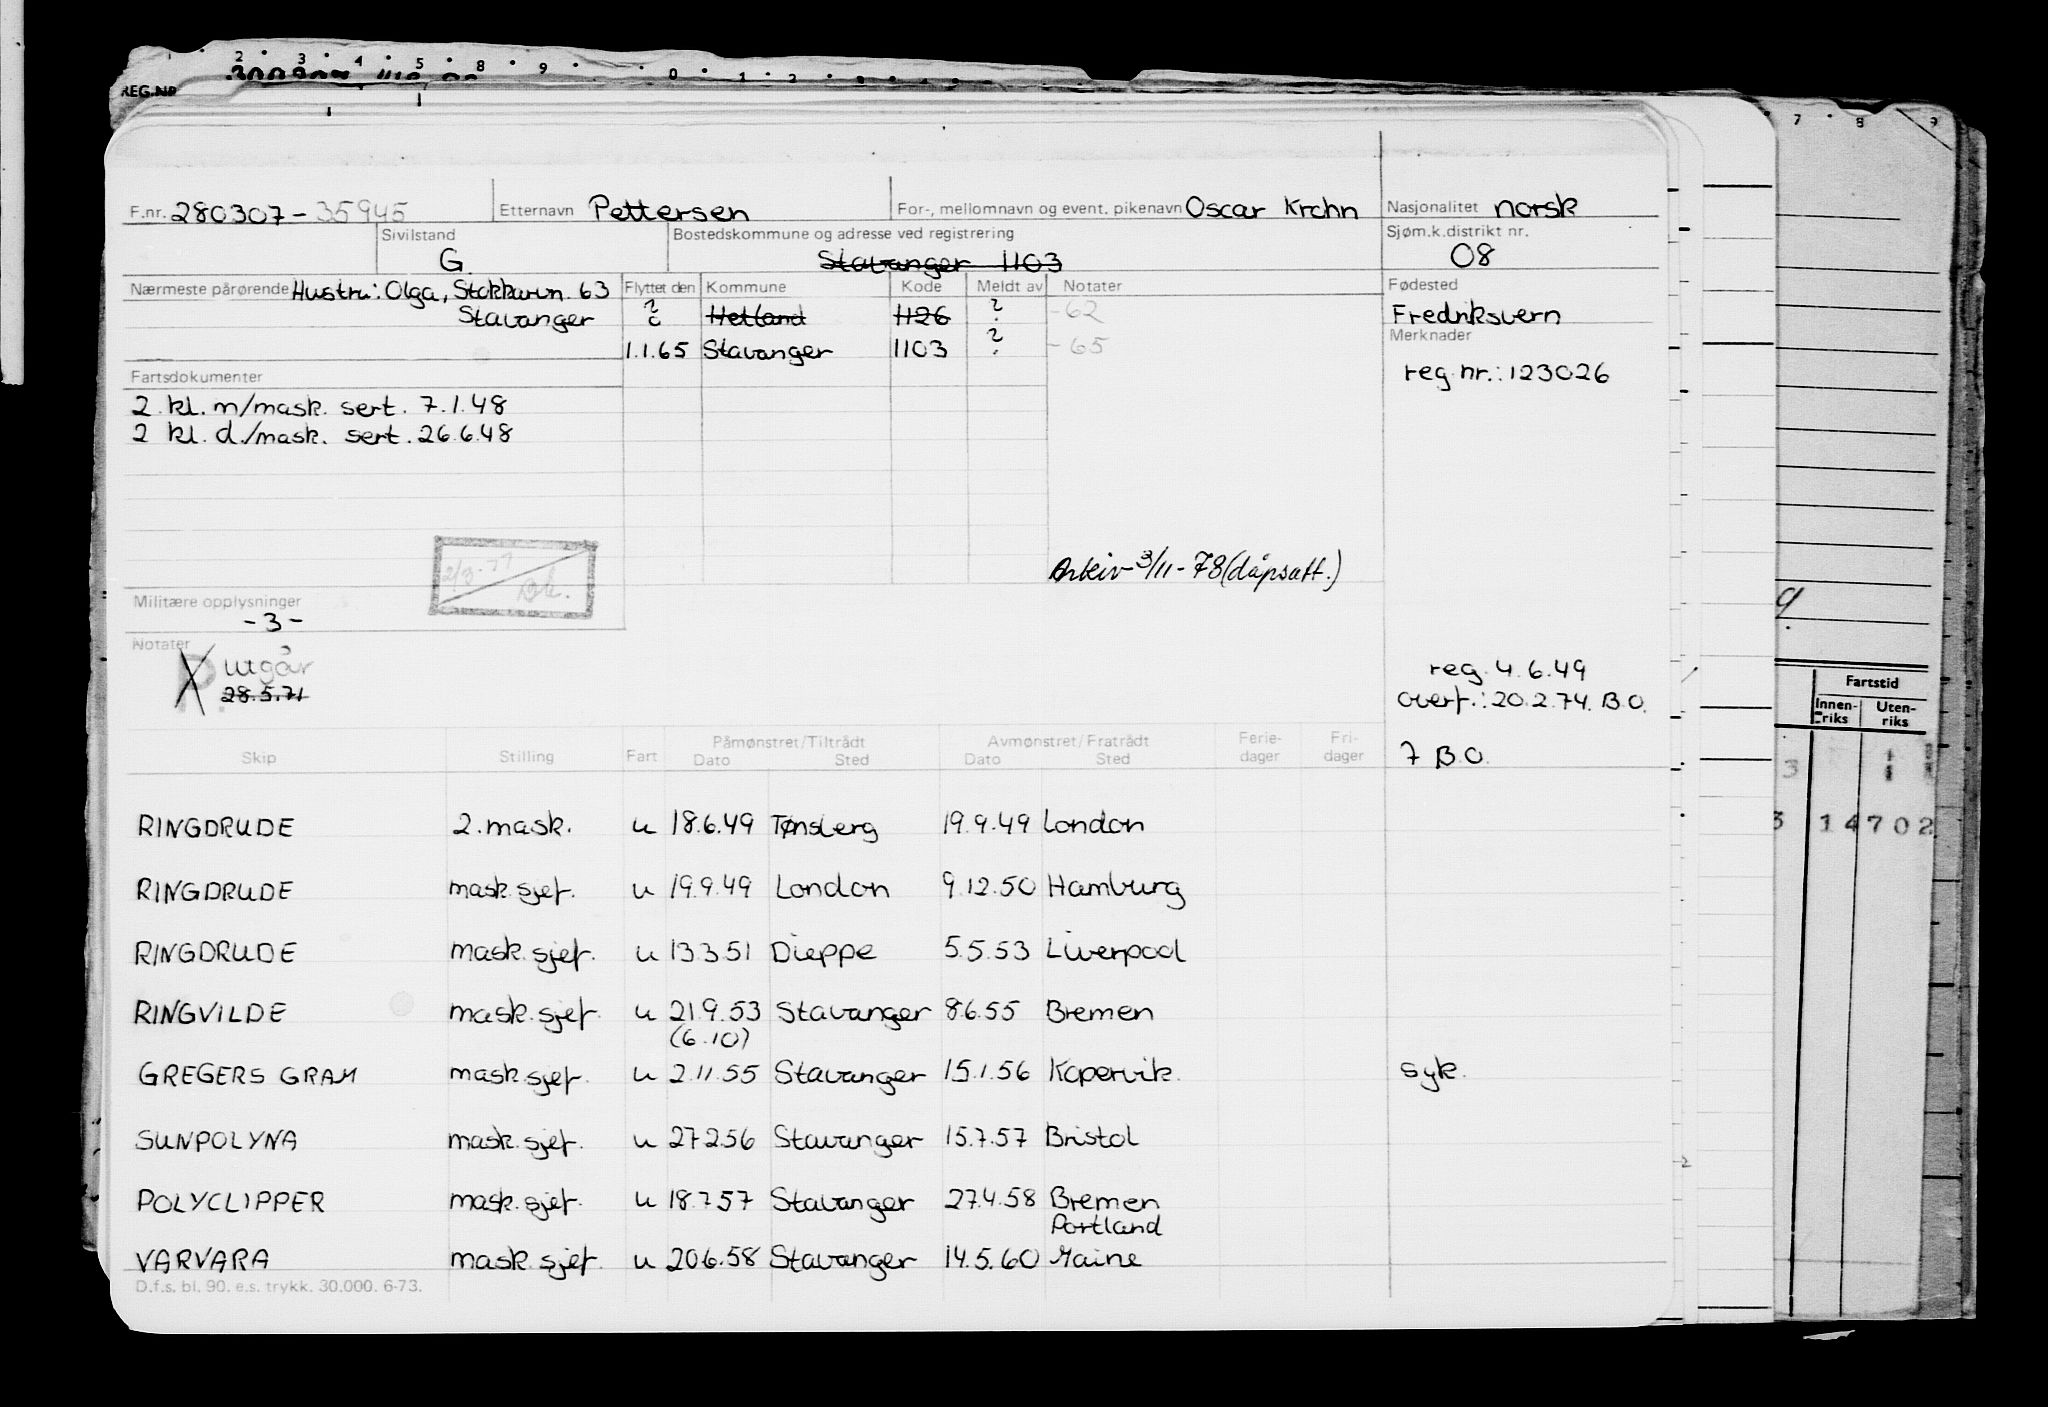 REG.NR
2 3 4 5 8 9 0 1 2
7 8 9
F.nr. 280307-35945 Etternavn Pettersen For-, mellomnavn og event. pikenavn Oscar Krohn Nasjonalitet norsk
Sivilstand Bostedskommune og adresse ved registrering Sjøm.k.distrikt nr.
G. Stavanger 1103 08
Nærmeste pårørende Hustru: Olga, Stokkavn. 63 Flyttet den Kommune Kode Meldt av Notater Fødested
Stavanger ? Hetland 1126 ? -62 Fredriksvern
1.1.65 Stavanger 1103 ? -65 Merknader
Fartsdokumenter reg.nr.: 123026
2 kl. m/mask. sert. 7.1.48
2 kl. d./mask. sert. 26.6.48
Arkiv 3/11-78 (dåpsatt.)
Militære opplysninger
-3-
Notater
R. utgår reg. 4.6.49
28.5.71 overf.: 20.2.74. B.O.
Påmønstret/Tiltrådt Avmønstret/Fratrådt Ferie- Fri- 7 B.O.
Skip Stilling Fart Dato Sted Dato Sted dager dager
RINGDRUDE 2. mask. u 18.6.49 Tønsberg 19.9.49 London
RINGDRUDE mask.sjef. u 19.9.49 London 9.12.50 Hamburg
RINGDRUDE mask.sjef. u 13.3.51 Dieppe 5.5.53 Liverpool
RINGVILDE mask.sjef. u 21.9.53 Stavanger 8.6.55 Bremen
(6.10)
GREGERS GRAM mask.sjef. u 2.11.55 Stavanger 15.1.56 Kopervik. syk.
SUNPOLYNA mask.sjef. u 27.2.56 Stavanger 15.7.57 Bristol
POLYCLIPPER mask.sjef. u 18.7.57 Stavanger 27.4.58 Bremen
Portland
VARVARA mask.sjef. u 20.6.58 Stavanger 14.5.60 Maine
D.f.s. bl. 90. e.s. trykk. 30.000. 6-73.
Fartstid
Innen-riks Uten-riks
3 14702